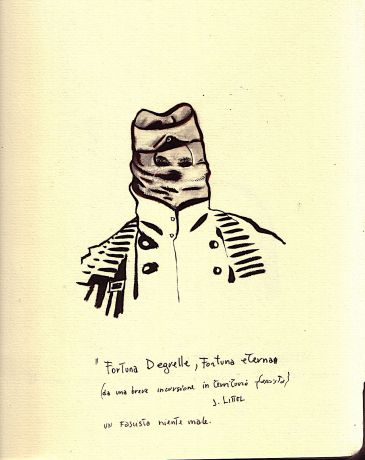 " Fortuna Degrelle, Fortuna eterna
(da una breve incursione in territorio fascista)
J. LITTEL
un fascista niente male.